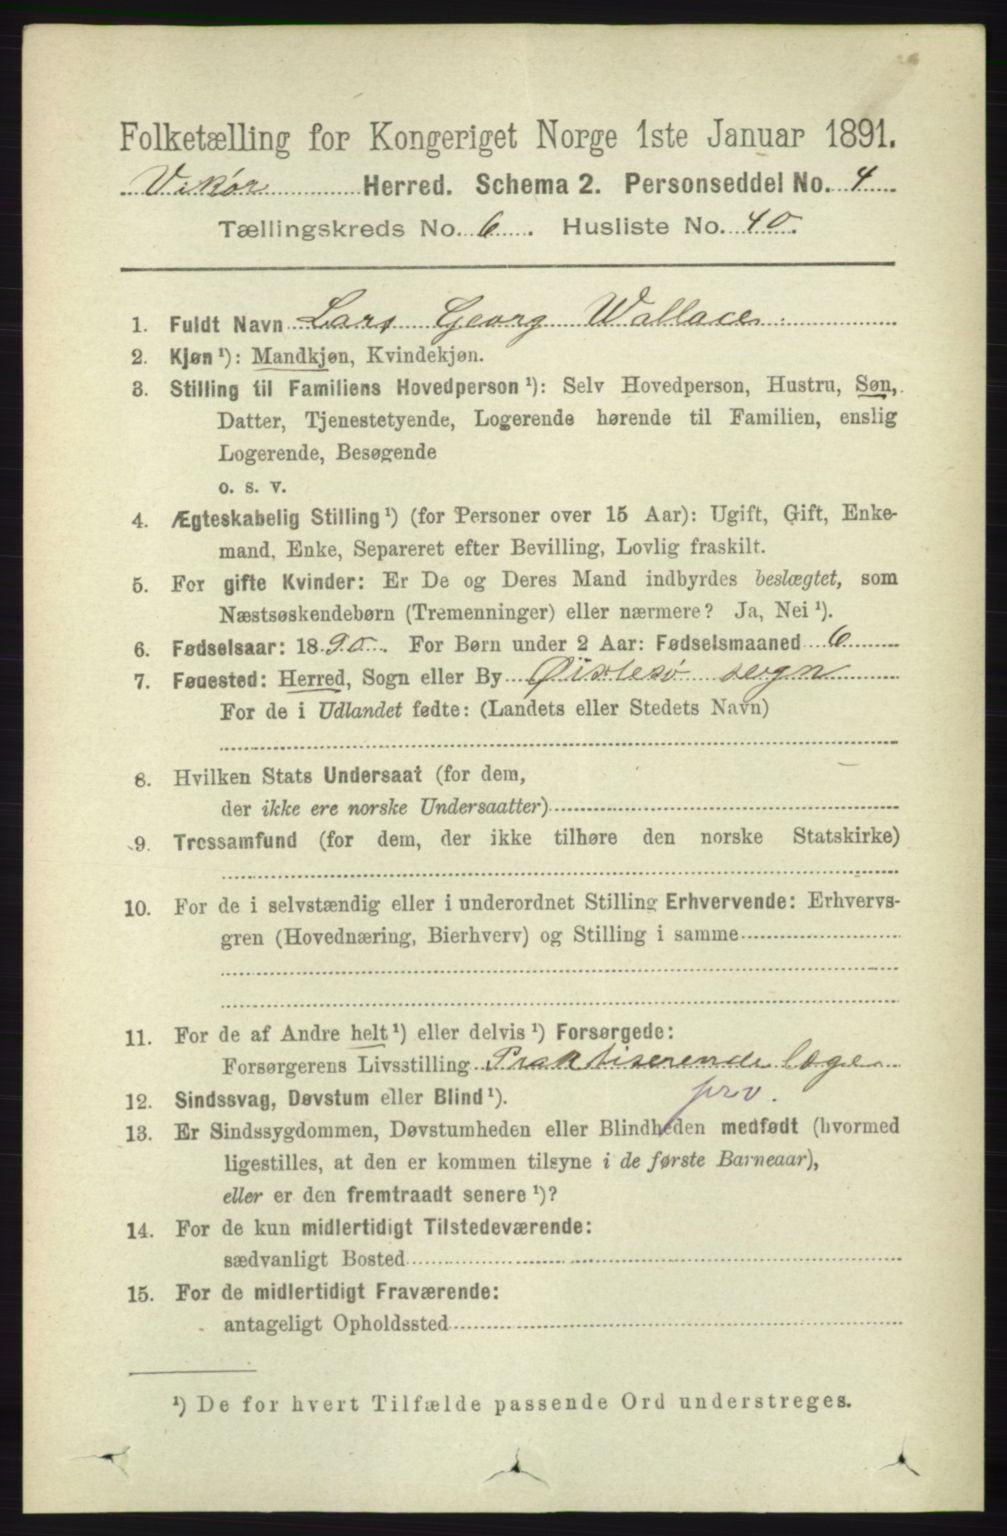 Folketælling for Kongeriget Norge 1ste Januar 1891.
Vikør Herred. Schema 2. Personseddel No. 4
Tællingskreds No. 6. Husliste No. 40.
1. Fuldt Navn Lars Georg Wallace
2. Kjøn¹): Mandkjøn, Kvindekjøn.
3. Stilling til Familiens Hovedperson¹): Selv Hovedperson, Hustru, Søn,
Datter, Tjenestetyende, Logerende hørende til Familien, enslig
Logerende, Besøgende
o. s. v.
4. Ægteskabelig Stilling¹) (for Personer over 15 Aar): Ugift, Gift, Enke-
mand, Enke, Separeret efter Bevilling, Lovlig fraskilt.
5. For gifte Kvinder: Er De og Deres Mand indbyrdes beslægtet, som
Næstsøskendebørn (Tremenninger) eller nærmere? Ja, Nei¹).
6. Fødselsaar: 1890. For Børn under 2 Aar: Fødselsmaaned 6
7. Føuested: Herred, Sogn eller By Øistesø sogn
For de i Udlandet fødte: (Landets eller Stedets Navn)
8. Hvilken Stats Undersaat (for dem,
der ikke ere norske Undersaatter)
9. Trossamfund (for dem, der ikke tilhøre den norske Statskirke)
10. For de i selvstændig eller i underordnet Stilling Erhvervende: Erhvervs-
gren (Hovednæring, Bierhverv) og Stilling i samme
11. For de af Andre helt¹) eller delvis¹) Forsørgede:
Forsørgerens Livsstilling Praktiserende læge
12. Sindssvag, Døvstum eller Blind¹). prv.
13. Er Sindssygdommen, Døvstumheden eller Blindheden medfødt (hvormed
ligestilles, at den er kommen tilsyne i de første Barneaar),
eller er den fremtraadt senere¹)?
14. For de kun midlertidigt Tilstedeværende:
sædvanligt Bosted
15. For de midlertidigt Fraværende:
antageligt Opholdssted
¹) De for hvert Tilfælde passende Ord understreges.